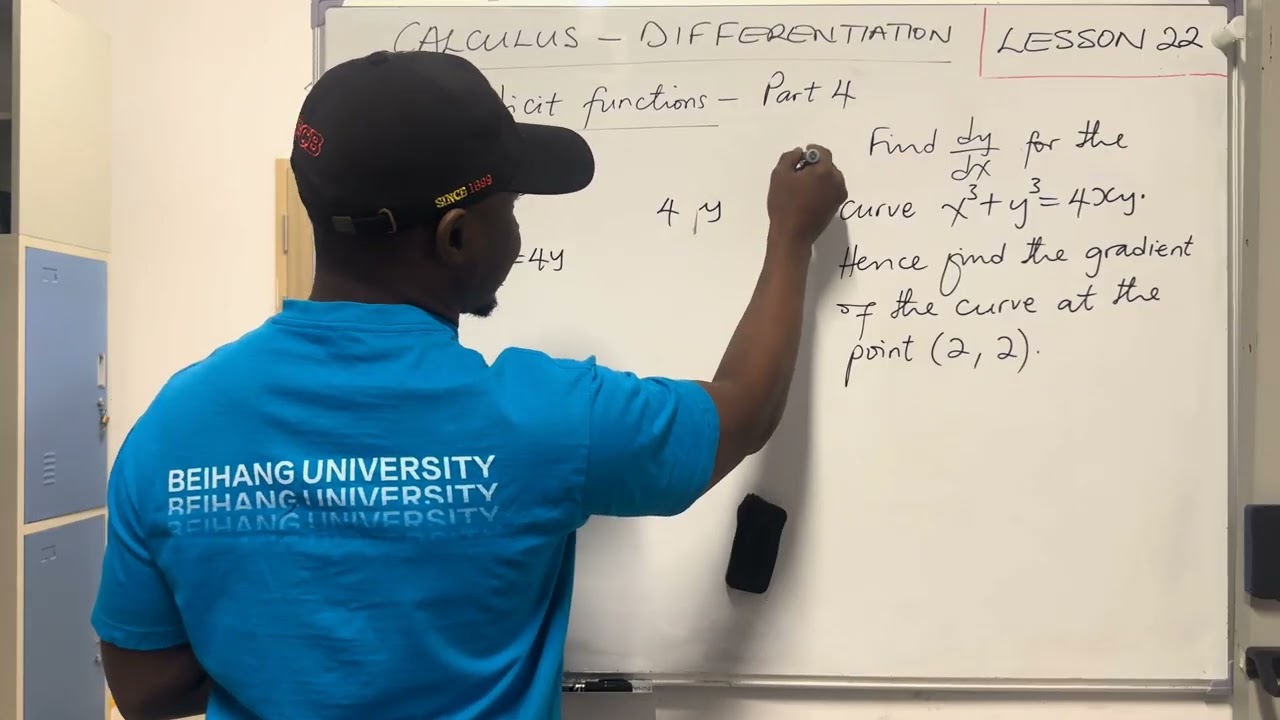 CALCULUS – DIFFERENTIATION
LESSON 22
functions – Part 4
Find dy/dx for the
curve x³ + y³ = 4xy.
Hence find the gradient
of the curve at the
point (2, 2).
4 y
=4y
SINCE 1899
BEIHANG UNIVERSITY
BEIHANG UNIVERSITY
BEIHANG UNIVERSITY